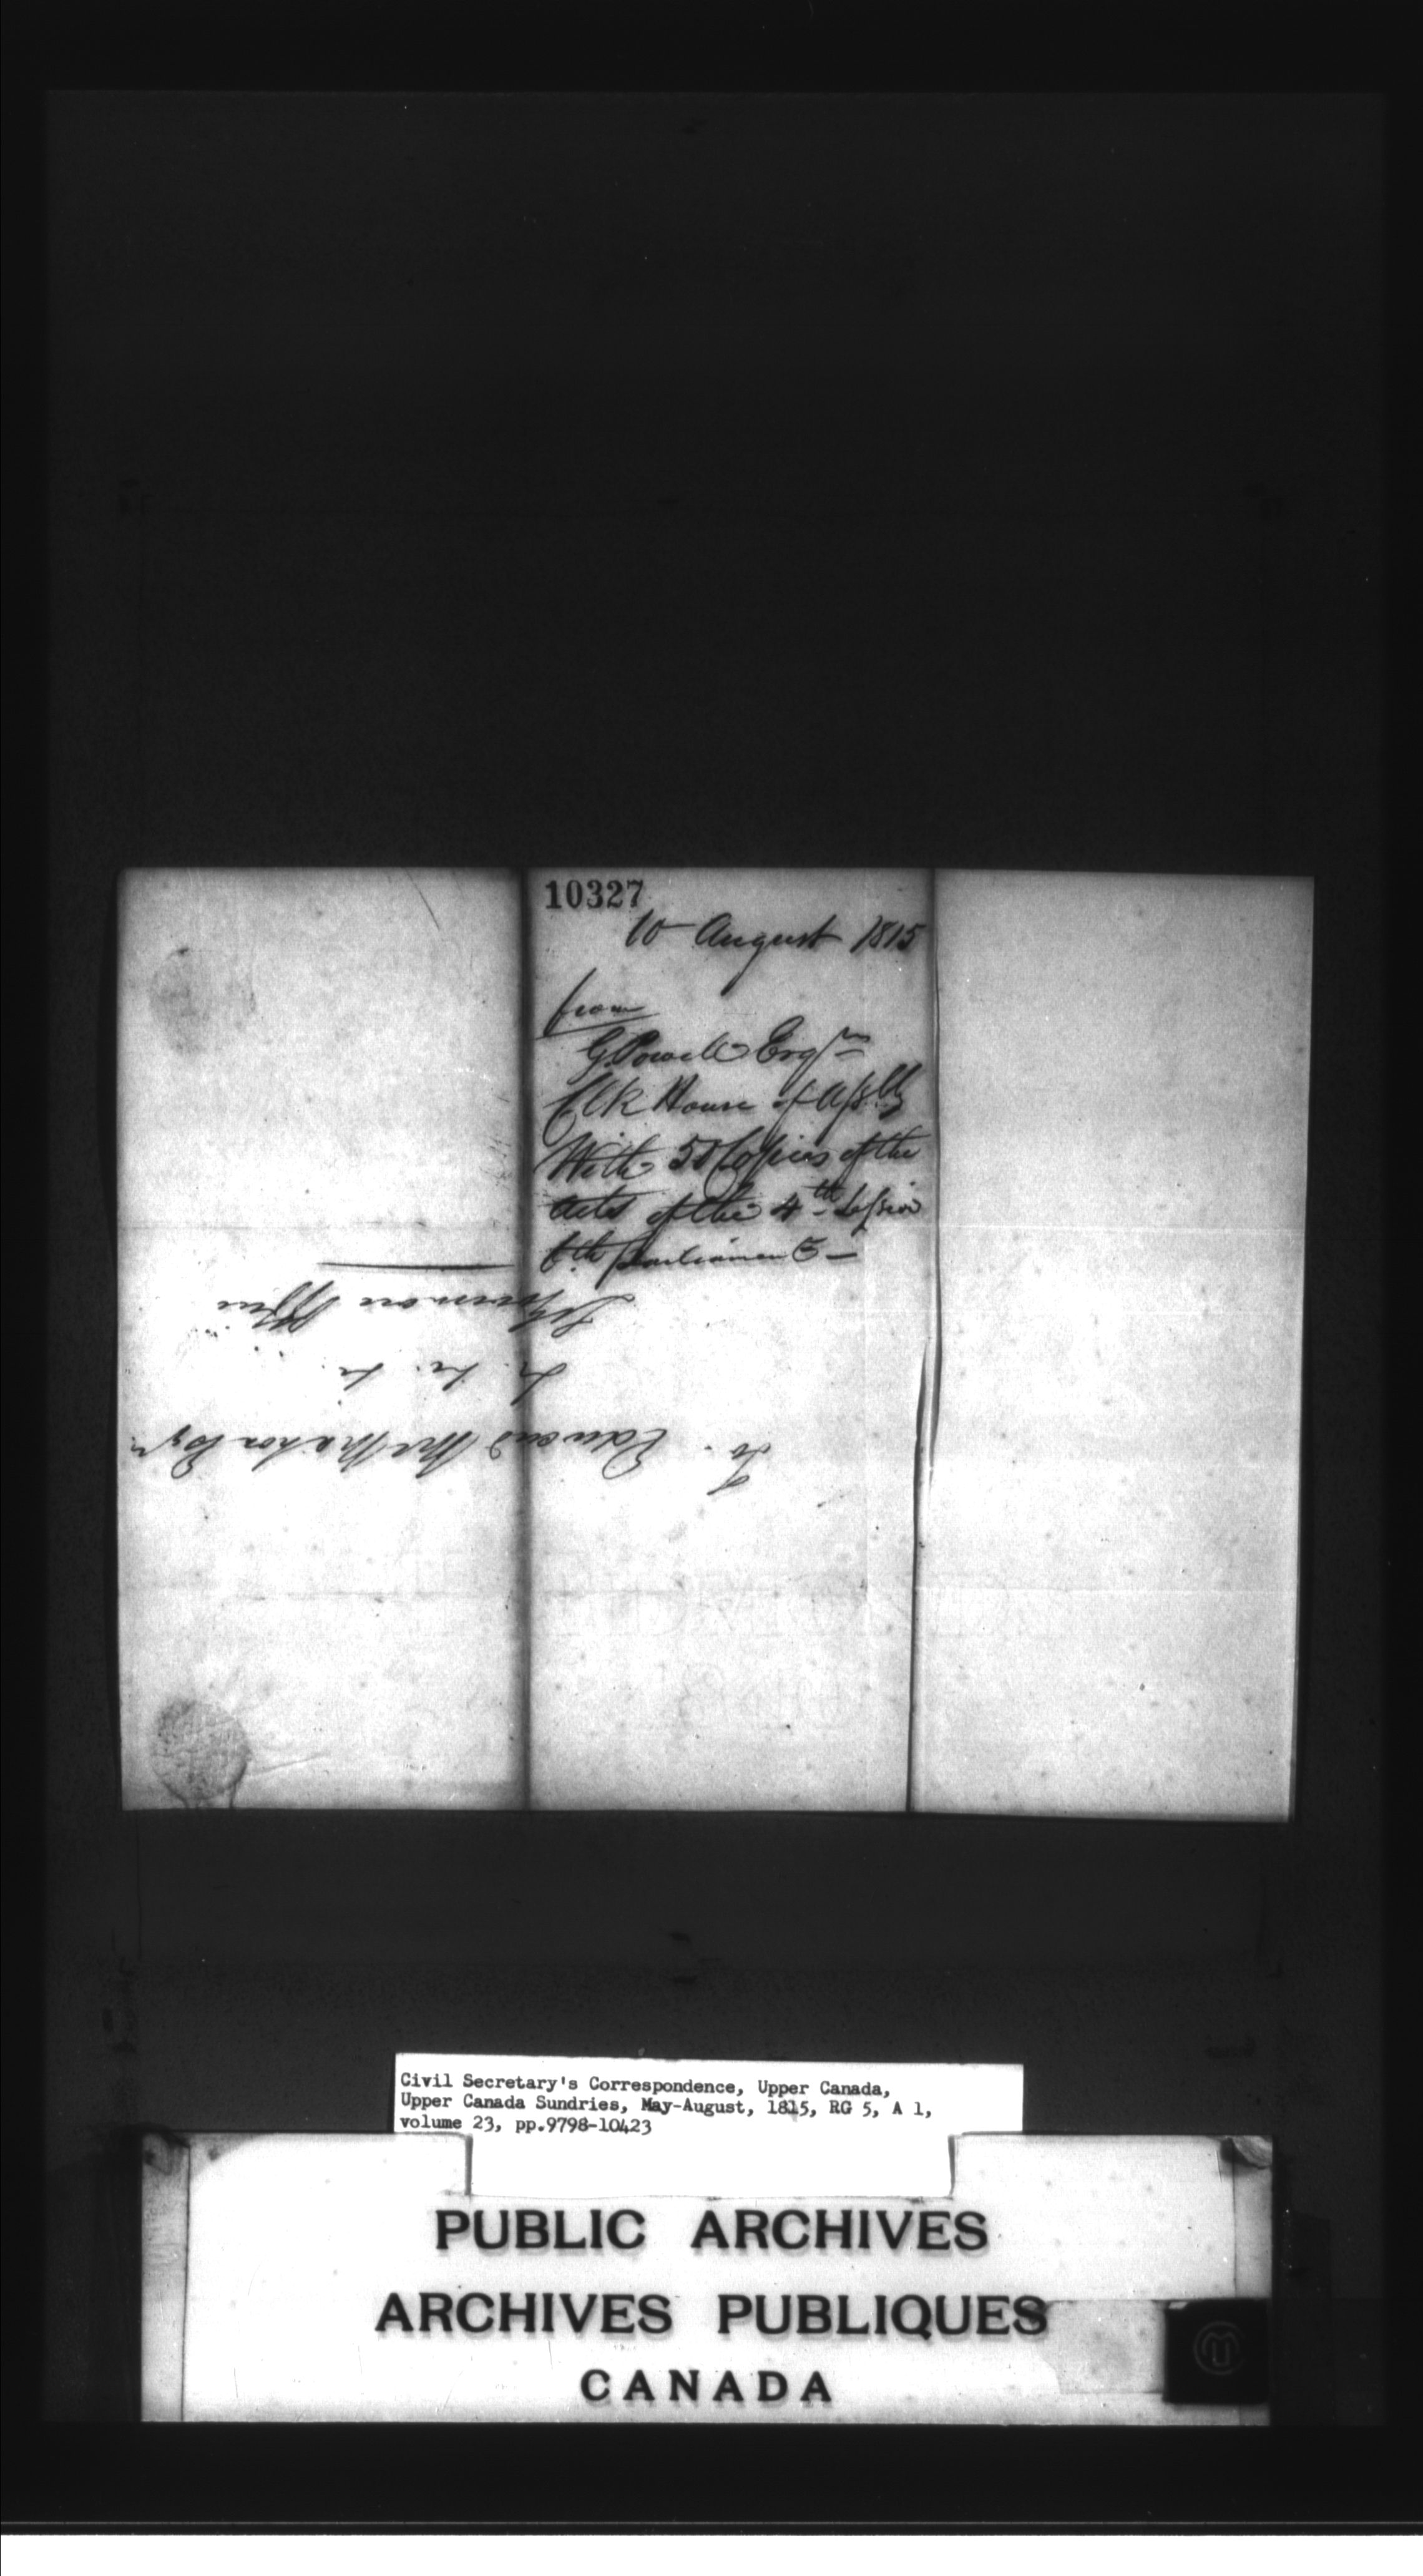 10327
10 August 1815
from
G Powell Esqr
Clk House of Assbly
With 50 Copies of the
Acts of the 4th Session
6th Parliament
To Edward McMahon Esqr
&c. &c. &c.
Lt Governors Office
Civil Secretary's Correspondence, Upper Canada,
Upper Canada Sundries, May-August, 1815, RG 5, A 1,
volume 23, pp.9798-10423
PUBLIC ARCHIVES
ARCHIVES PUBLIQUES
CANADA